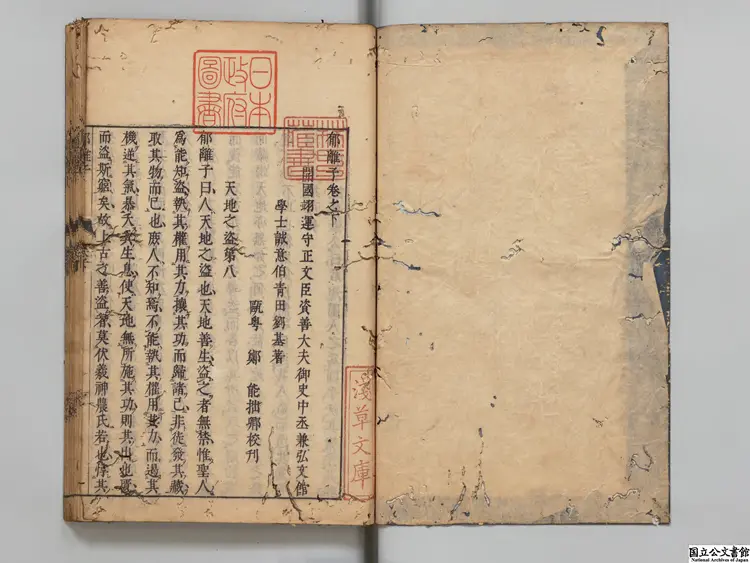 郁離子卷之下
開國翊運守正文臣資善大夫御史中丞兼弘文館
學士誠意伯青田劉基著
甌粤 鄭 能拙卿校刊
天地之盜第八
郁離子曰人天地之盜也天地善生盜之者無禁惟聖人
爲能知盜執其權用其力攘其功而歸諸己非徒發其藏
取其物而已也庶人不知焉不能執其權用其力而遏其
機逆其氣暴夭其生息使天地無所施其功則其出也匱
而盜斯窮矣故上古之善盜者莫伏羲神農氏若也惇其
日本
政府
圖書
淺草文庫
国立公文書館
National Archives of Japan